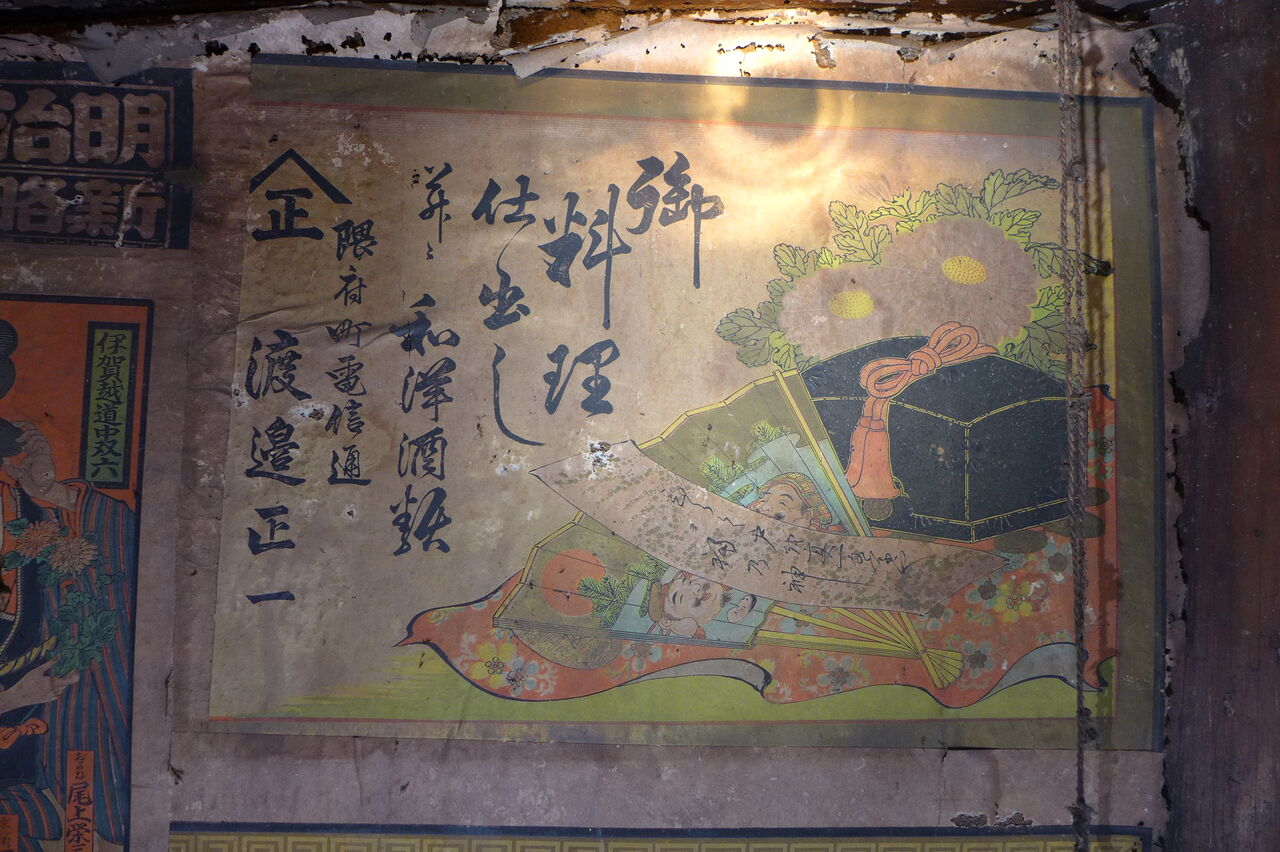 御
料理
仕出し
并ニ和洋酒類
隈府町電信通
正 渡邉正一
福乃神
明治
伊賀越道中双六
尾上栄三